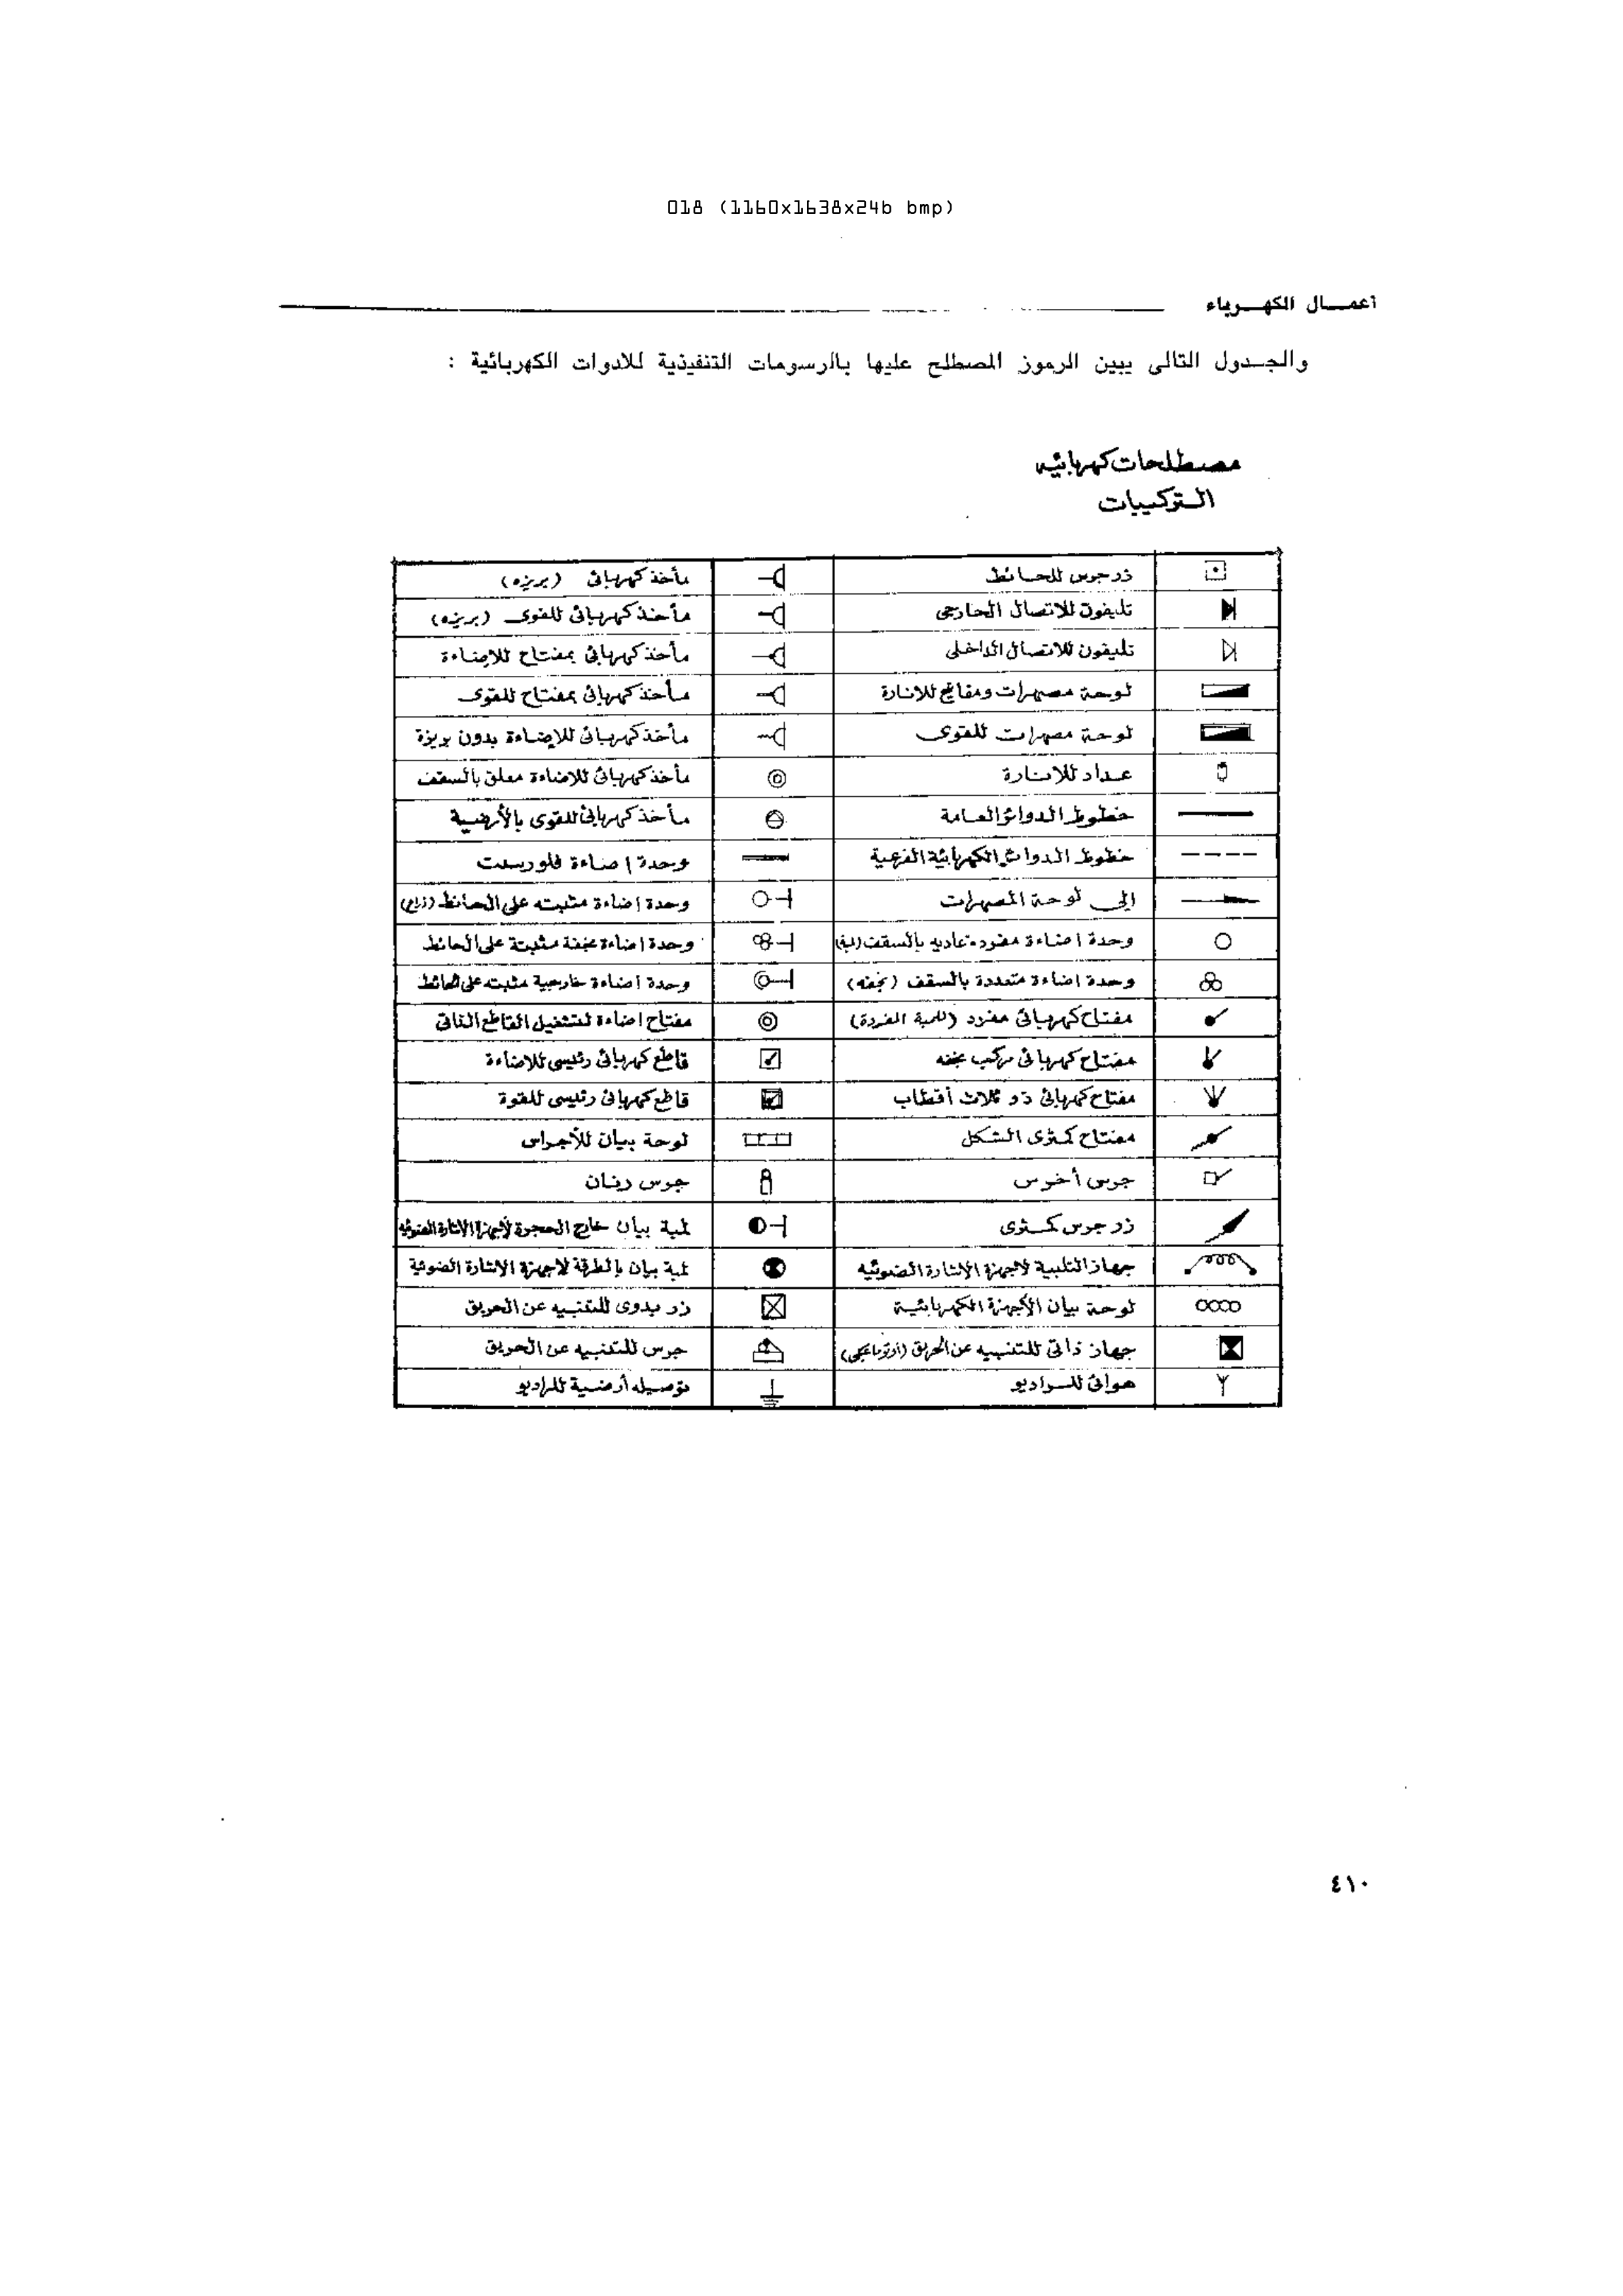 018 (1160x1638x24b bmp)
أعمـــال الكهـــرباء
والجـدول التالى يبين الرموز المصطلح عليها بالرسومات التنفيذية للادوات الكهربائية :
مصطلحات كهربائيه
التركيبات
زر جرس للحائط
مأخذ كهربائى (بريزه)
تليفون للاتصال الخارجى
مأخذ كهربائى للقوى (بريزه)
تليفون للاتصال الداخلى
مأخذ كهربائى بمفتاح للإضاءة
لوحة مصهرات ومفاتيح للانارة
مأخذ كهربائى بمفتاح للقوى
لوحة مصهرات للقوى
مأخذ كهربائى للإضاءة بدون بريزة
عداد للانارة
مأخذ كهربائى للاضاءة معلق بالسقف
خطوط الدوائر العامة
مأخذ كهربائى للقوى بالأرضية
خطوط الدوائر الكهربائية الفرعية
وحدة اضاءة فلوريسنت
إلى لوحة المصهرات
وحدة اضاءة مثبته على الحائط
وحدة اضاءة مفرده عاديه بالسقف (لمبة)
وحدة اضاءة نجفة مثبتة على الحائط
وحدة اضاءة متعددة بالسقف (نجفه)
وحدة اضاءة خارجية مثبته على الحائط
مفتاح كهربائى مفرد (للمبة المفردة)
مفتاح اضاءة لتشغيل القاطع الذاتى
مفتاح كهربائى مركب نجفه
قاطع كهربائى رئيسى للاضاءة
مفتاح كهربائى ذو ثلاث أقطاب
قاطع كهربائى رئيسى للقوة
مفتاح كمثرى الشكل
لوحة بيان للأجراس
جرس أخرس
جرس رنان
زر جرس كمثرى
لمبة بيان خارج الحجرة لأجهزة الاشارة الضوئية
جهاز التلبية لاجهزة الاشارة الضوئيه
لمبة بيان بالطرقة لاجهزة الاشارة الضوئية
لوحة بيان الأجهزة الكهربائية
زر يدوى للتنبيه عن الحريق
جهاز ذاتى للتنبيه عن الحريق (أوتوماتيكى)
جرس للتنبيه عن الحريق
هوائى للراديو
توصيله أرضية للراديو
٤١٠